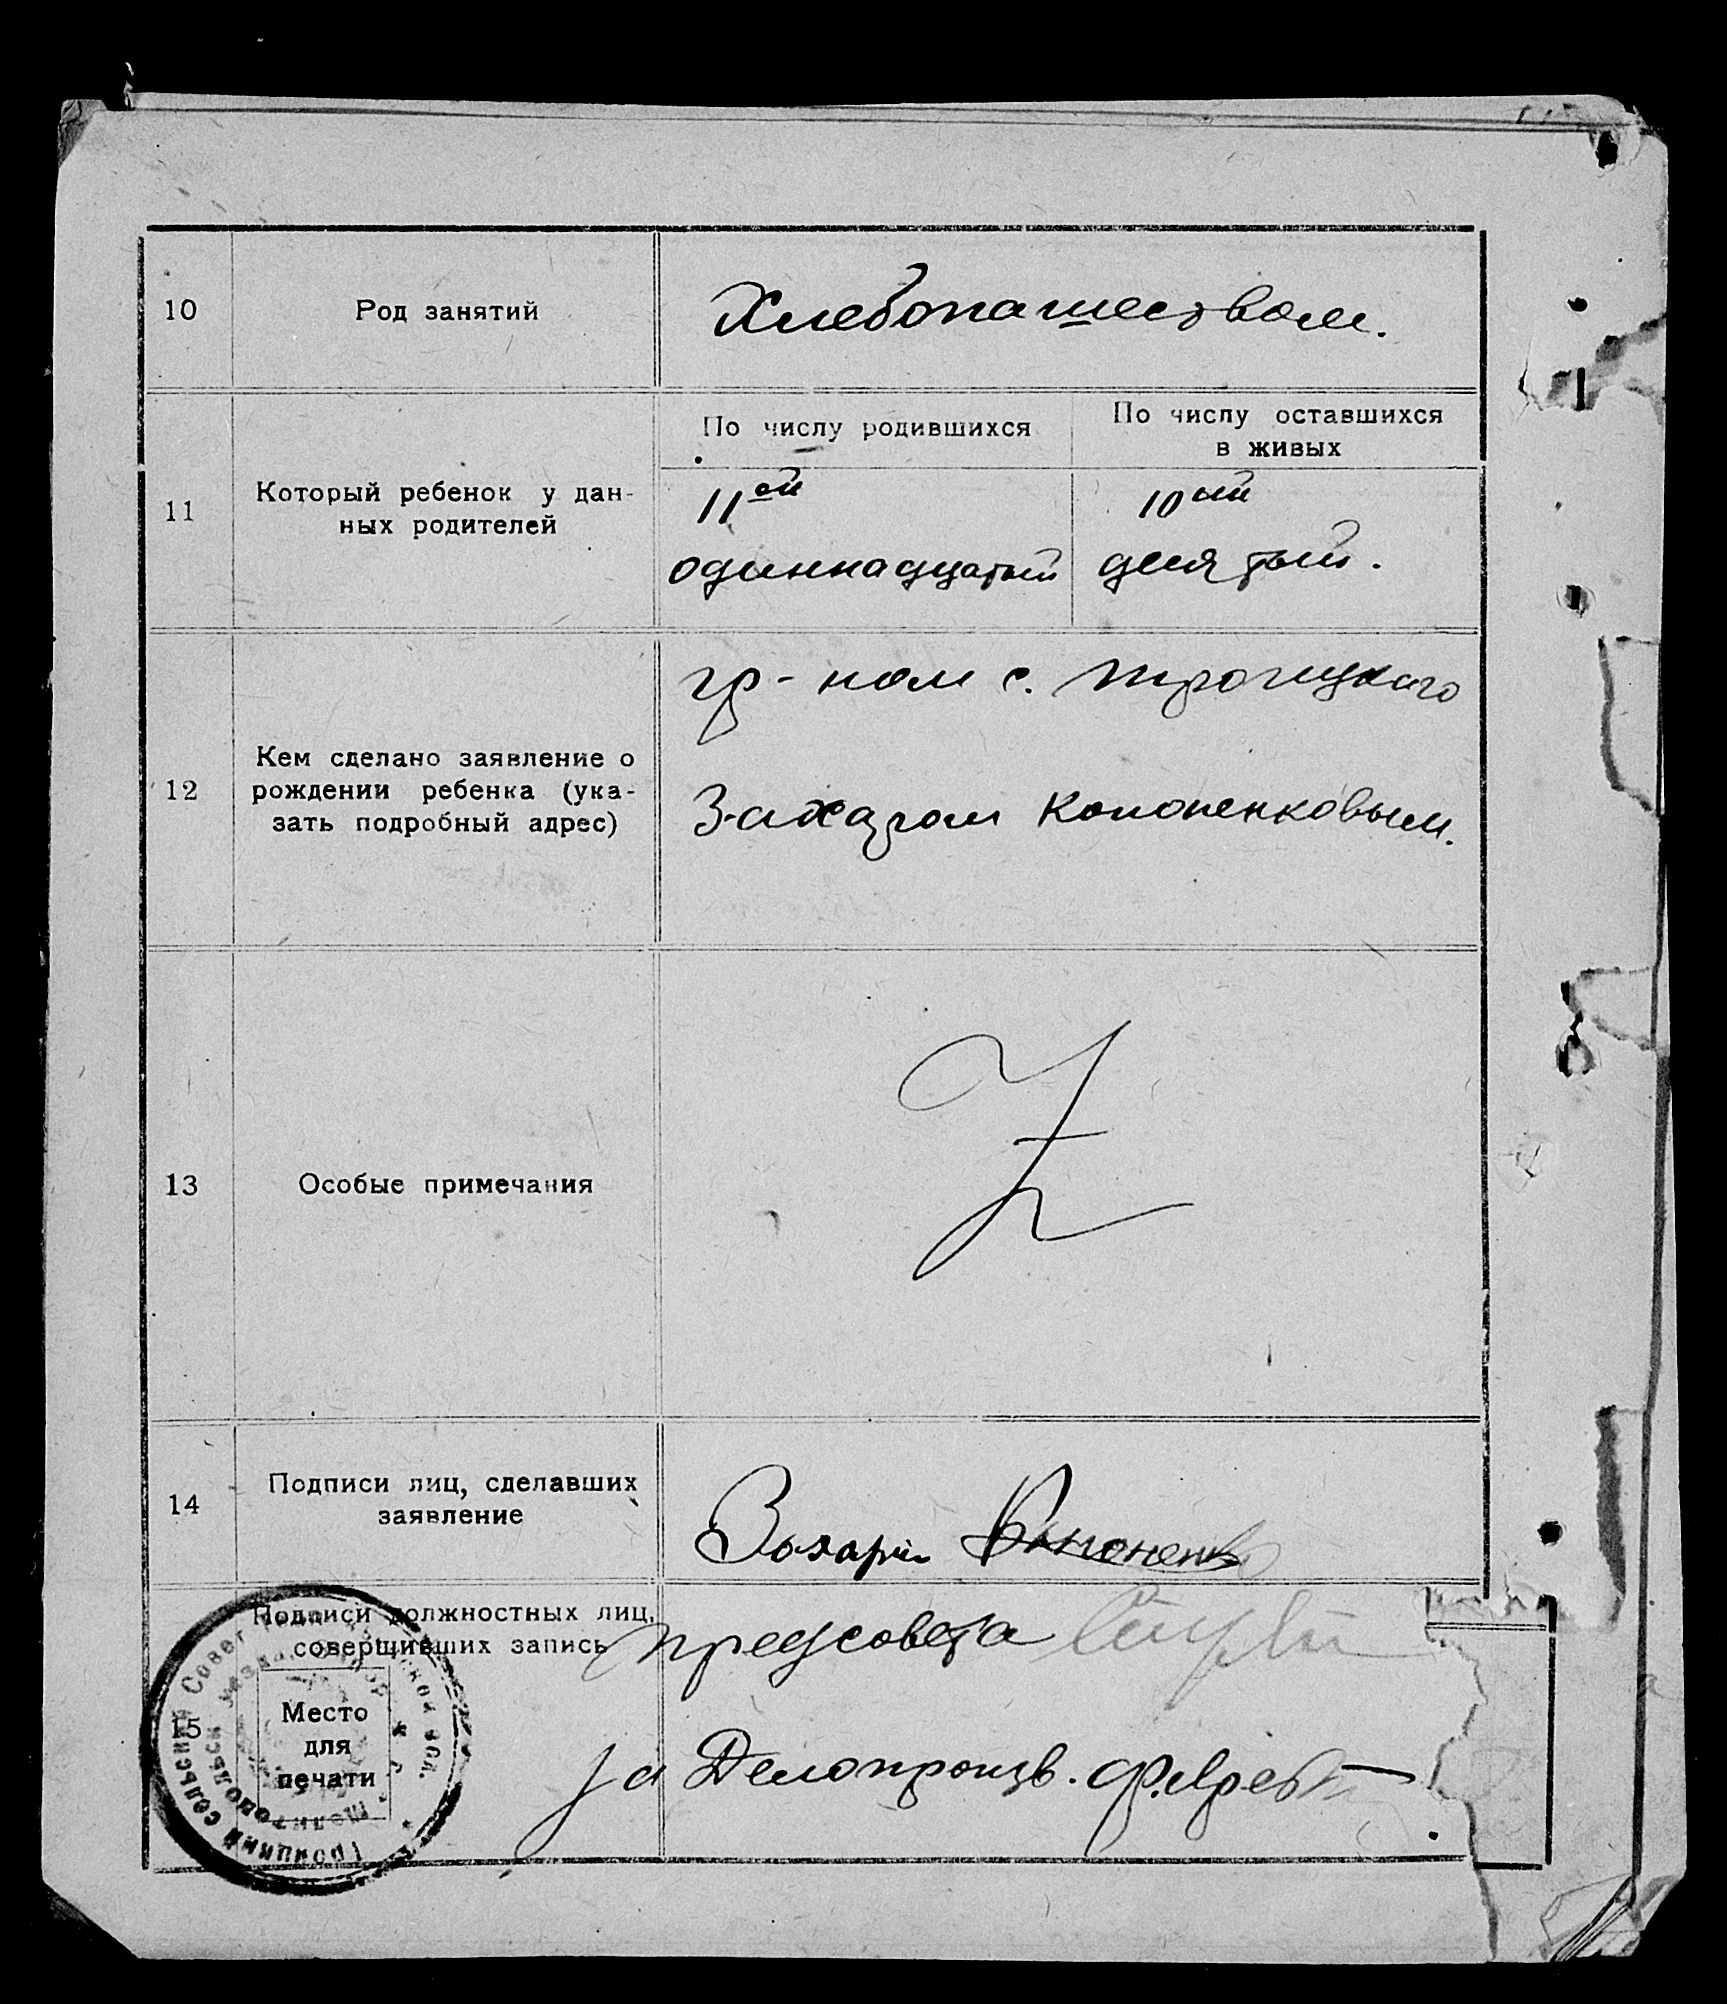 10
Род занятий
Хлебопашеством.
11
Который ребенок у дан-
ных родителей
По числу родившихся
11ой
одиннадцатый
По числу оставшихся
в живых
10ый
десятый.
12
Кем сделано заявление о
рождении ребенка (ука-
зать подробный адрес)
гр-ном с. Троицкаго
Захаром Кононенковым.
13
Особые примечания
Z
14
Подписи лиц, сделавших
заявление
Захарий Кононенко
15
Подписи должностных лиц,
совершивших запись
Место
для
печати
предсовета
за Делопроизв.
Троицкий сельский Совет